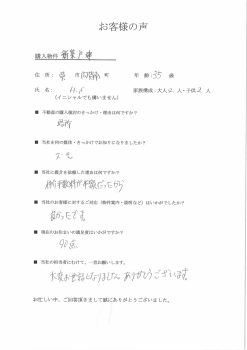 お客様の声
購入物件 新築戸建
住 所： 市 町 年 齢 35 歳
氏 名： H.S 家族構成：大人2人・子供2人
（イニシャルでも構いません）
■ 不動産の購入検討のきっかけ・理由は何ですか？
場所
■ 当社を何の媒体・きっかけでお知りになりましたか？
■ 当社に仲介を依頼した理由は何ですか？
仲介手数料が半額だったから
■ 当社のお客様に対するご対応（物件案内・説明など）はいかがですか？
良かったです
■ 現在のお住まいの満足度はいかがですか？
90点
■ 当社の担当者にむけて、一言お願いします。
大変お世話になりました。ありがとうございます
お忙しい中、ご回答頂きまして誠にありがとうございました。